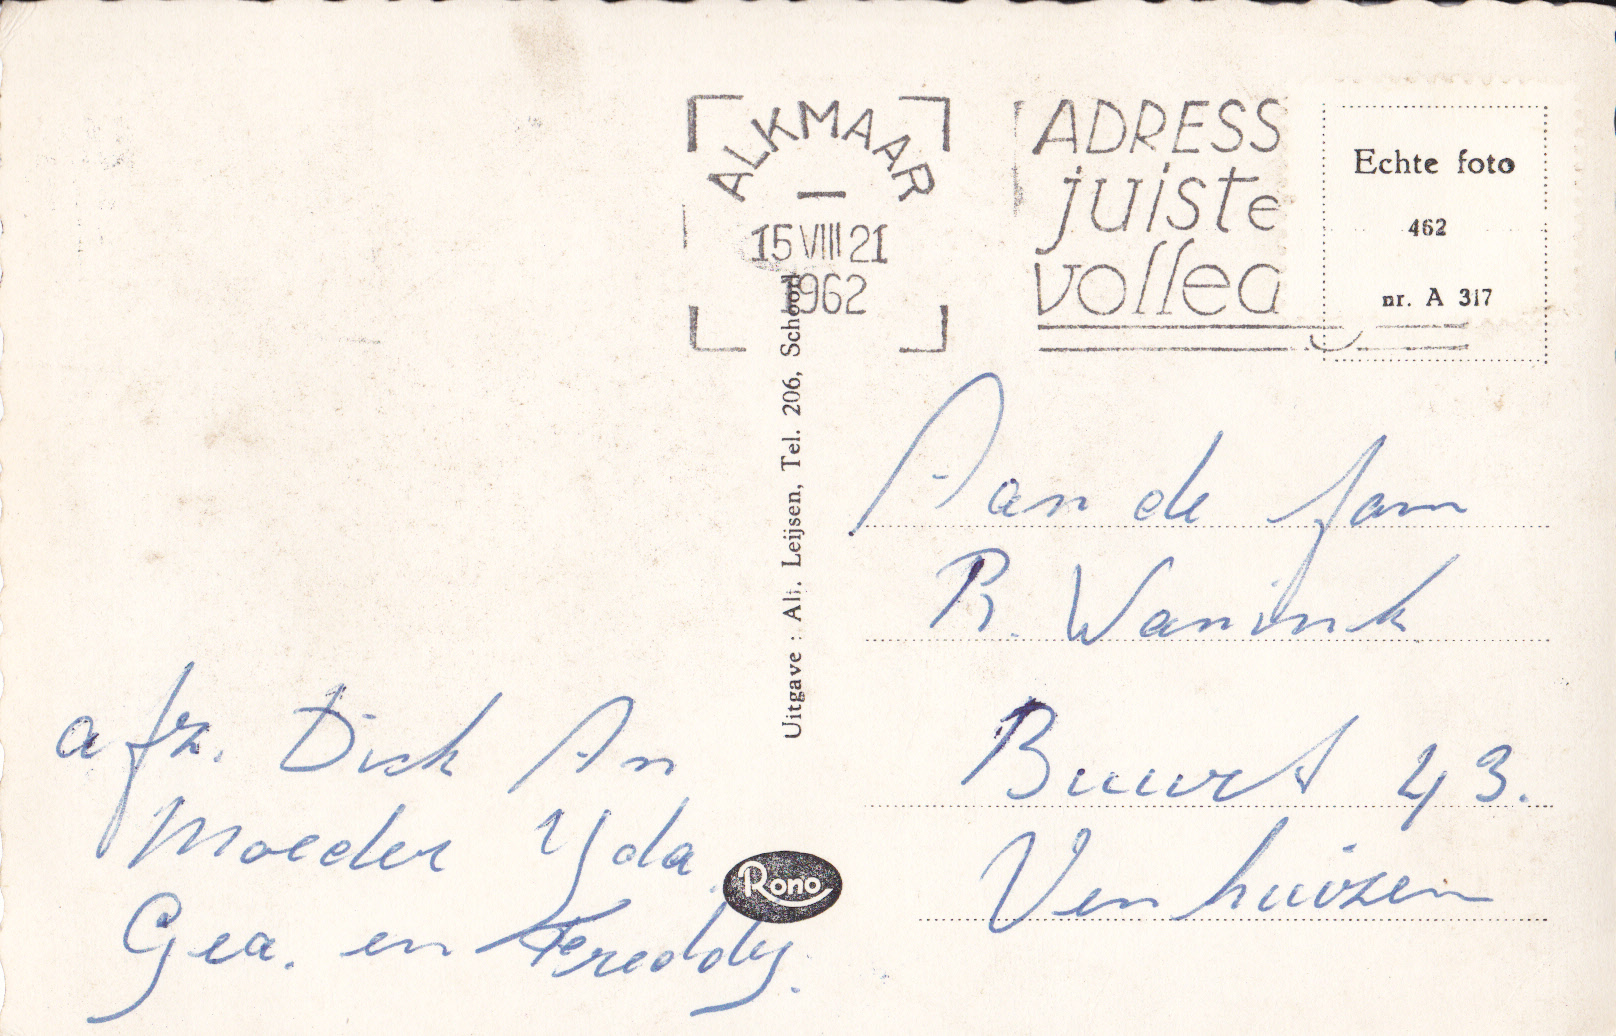 ALKMAAR
15 VIII 21
1962
ADRESS
juiste
volled
Echte foto
462
nr. A 317
Uitgave : Alb. Leijsen, Tel. 206, Schoorl
Aan de fam
R. Wanink
Buurt 43.
Venhuizen
afz. Dick An
Moeder Yda.
Gea. en Freddy.
Rono